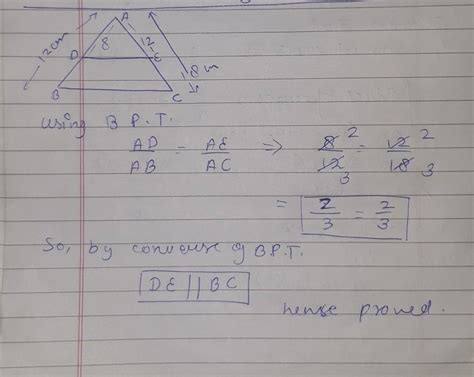 A
12cm
8
12
18 m
D
E
B
C
using B P.T.
AD/AB = AE/AC => 8/12 2/3 = 12/18 2/3
= 2/3 = 2/3
So, by converse of B.P.T.
DE || BC
hense proved.